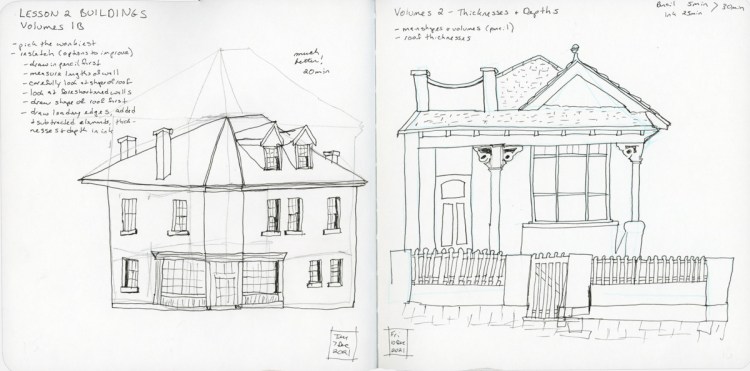 LESSON 2 BUILDINGS
Volumes 1B
- pick the wonkiest
- resketch (options to improve)
- draw in pencil first
- measure lengths of wall
- carefully look at shape of roof
- look at foreshortened walls
- draw shape of roof first
- draw leading edges, added
+ subtracted elements, thick-
nesses + depth in ink
much
better!
20min
7 Dec
2021
Volumes 2 - Thicknesses + Depths
- mainshapes + volumes (pencil)
- roof thicknesses
5min > 30min
Ink 25min
Fri
Dec
2021